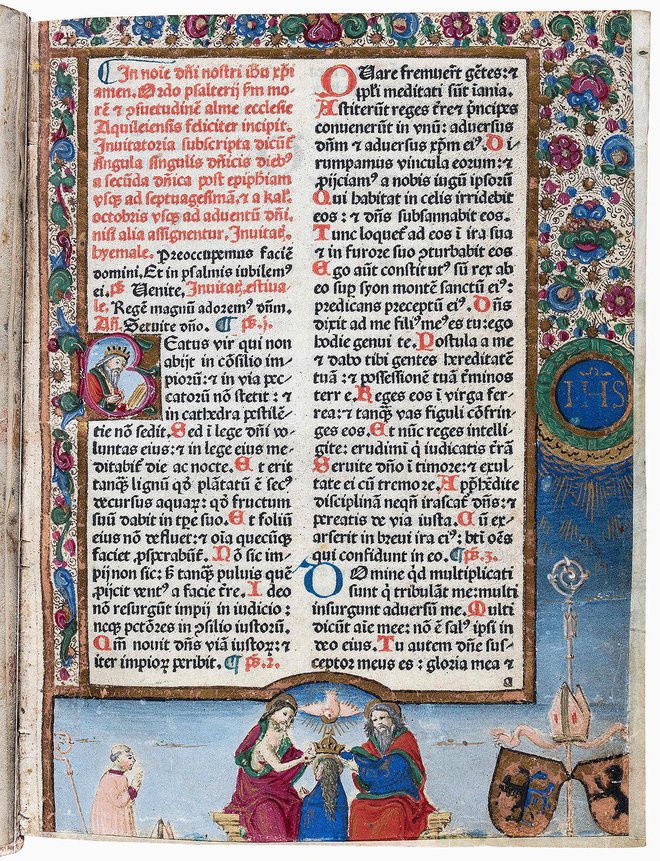 In noīe dn̄i nostri iħu xp̄i
amen. Ordo psalterij ẜm mo⸗
rē ⁊ ꝯsuetudinē alme ecclesie
Aquileiensis feliciter incipit.
Inuitatoria subscripta dicūt᷑
singula singulis dn̄icis diebꝰ
a secūda dn̄ica post epipħiam
vsqꝫ ad septuagesimā, ⁊ a kal.
octobris vsqꝫ ad aduentū dn̄i,
nisi alia assignentur. Inuitat.
hyemale. Preoccupemus faciē
domini, Et in psalmis iubilemꝰ
ei. ps̄ Uenite, Inuitat. estiua⸗
le. Regē magnū adorem⁹ dn̄m.
An̄. Seruite dn̄o. ps̄. j.
BEatus vir qui non
abijt in cōsilio im⸗
piorū: ⁊ in via pec⸗
catorū nō stetit: ⁊
in cathedra pestilē⸗
tie nō sedit. Sed i lege dn̄i vo⸗
luntas eius: ⁊ in lege eius me⸗
ditabit᷑ die ac nocte. Et erit
tanqꝫ lignū qď plātatū ē secꝰ
decursus aquaꝝ: qď fructum
suū dabit in tp̄e suo. Et foliū
eius nō defluet: ⁊ oīa quecūqꝫ
faciet, ꝓsperabūt᷑. Nō sic im⸗
pij non sic: ẜ tanqꝫ puluis quē
ꝓijcit ventꝰ a facie t̄re. Ideo
nō resurgūt impij in iudicio:
neqꝫ pctōres in ꝯsilio iustorū.
Qm̄ nouit dn̄s viā iustoꝝ: ⁊
iter impioꝝ peribit. ps̄. 2.
QUare fremuer̄t gētes: ⁊
ppl̄i meditati sūt īania.
Astiterūt reges t̄re ⁊ pͥncipes
conuenerūt in vnū: aduersus
dn̄m ⁊ aduersus xp̄m eiꝰ. Di⸗
rumpamus vincula eorum: ⁊
ꝓijciamꝰ a nobis iugū ipsorū
Qui habitat in celis irridebit
eos: ⁊ dn̄s subsannabit eos.
Tunc loquet᷑ ad eos ī ira sua
⁊ in furore suo ꝯturbabit eos
Ego aūt constitutꝰ sū rex ab
eo suꝑ syon montē sanctū eiꝰ:
predicans preceptū eiꝰ. Dn̄s
dixit ad me filiꝰ meꝰ es tu: ego
hodie genui te. Postula a me
⁊ dabo tibi gentes hereditatē
tuā: ⁊ possessionē tuā t̄minos
terre. Reges eos ī virga fer⸗
rea: ⁊ tanqꝫ vas figuli cōfrin
ges eos. Et nūc reges intelli
gite: erudimī q iudicatis t̄rā
Seruite dn̄o ī timore: ⁊ exul
tate ei cū tremore. Apꝑħēdite
disciplinā neqn̄ irascat᷑ dn̄s: ⁊
pereatis de via iusta. Cū ex⸗
arserit in breui ira eiꝰ: bt̄i oēs
qui confidunt in eo. ps̄. 3.
DOmine qď multiplicati
sunt q̇ tribulāt me: multi
insurgunt aduersū me. Multi
dicūt aīe mee: nō ē salꝰ ipsi in
deo eius. Tu autem dn̄e sus⸗
ceptor meus es: gloria mea ⁊
a
IHS